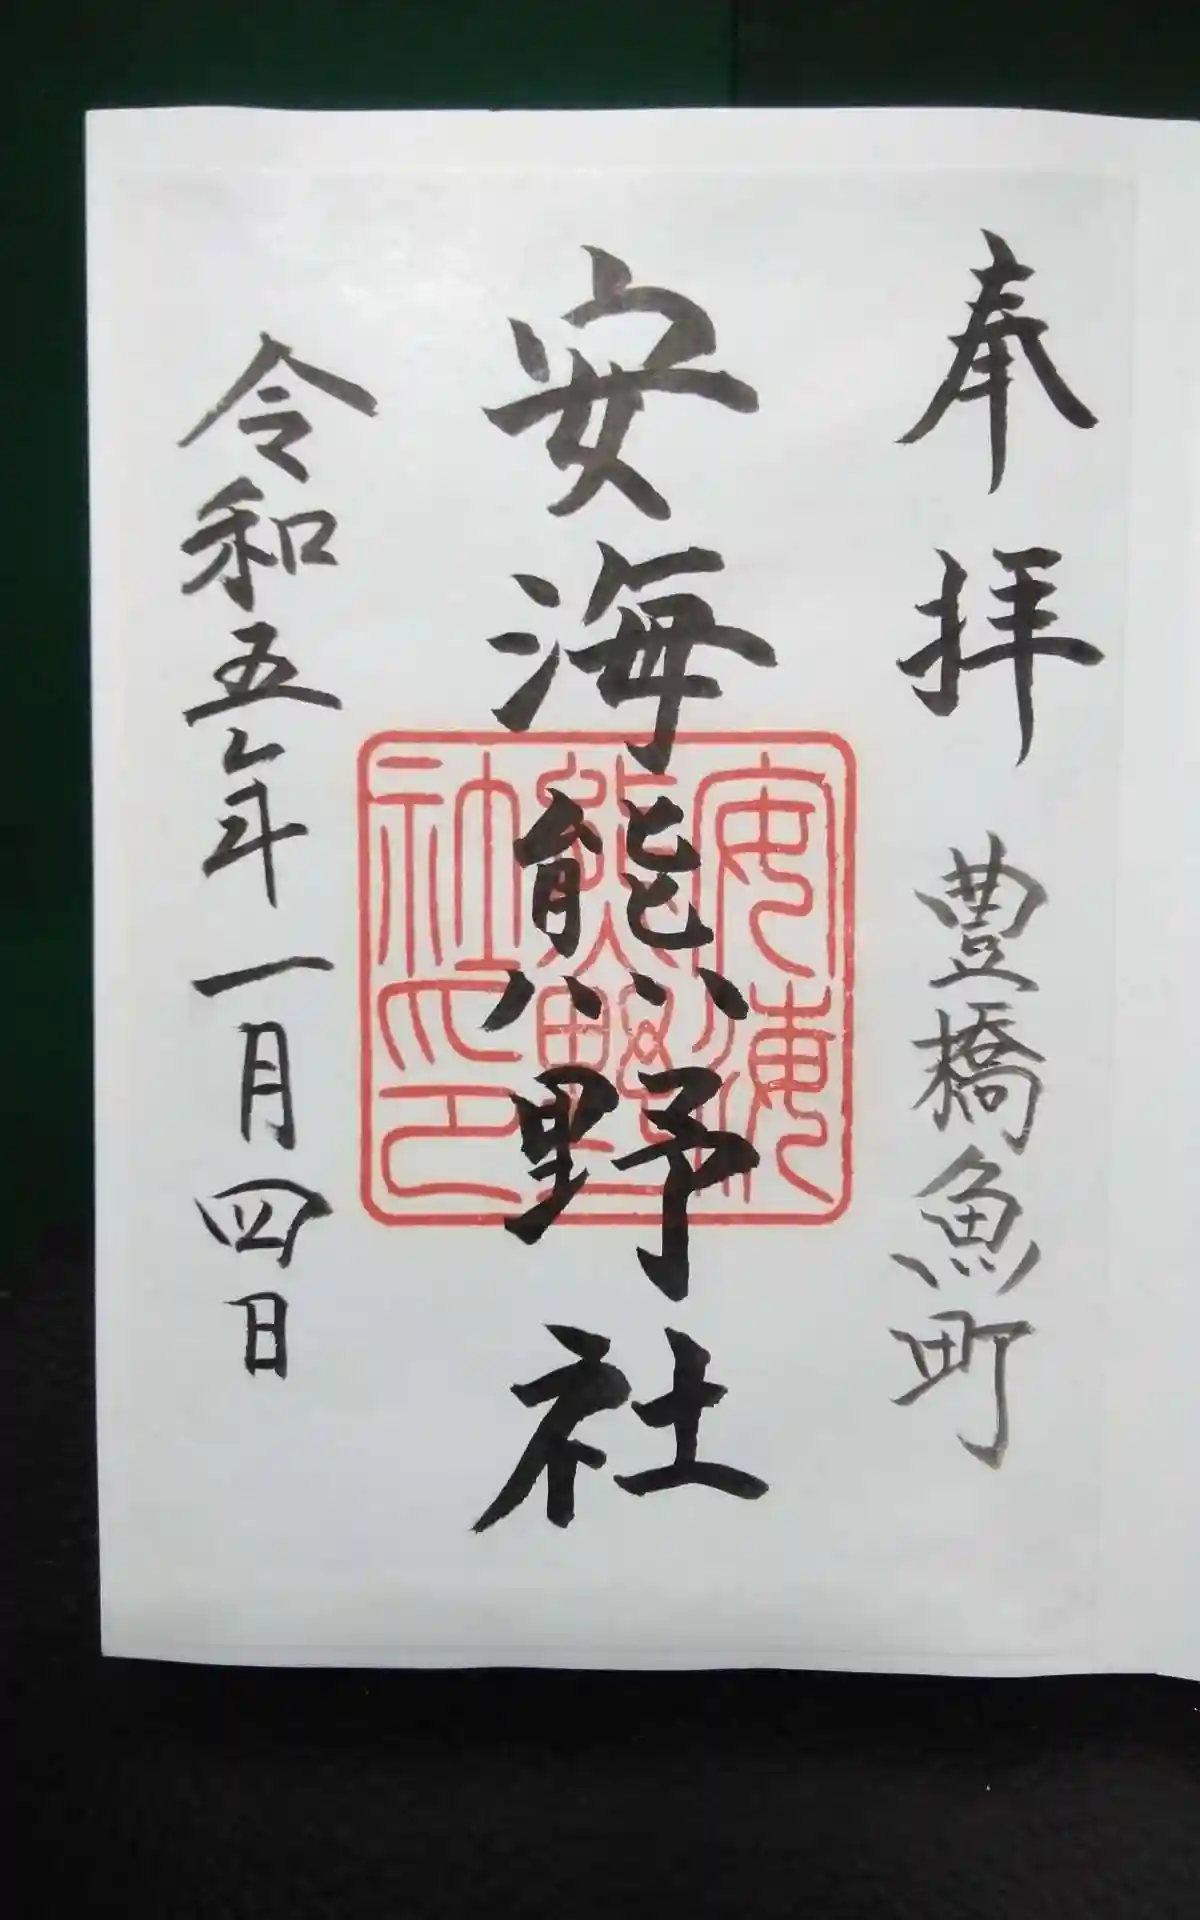 奉拝 豊橋魚町
安海熊野社
令和五年一月四日
安海
熊野
社印